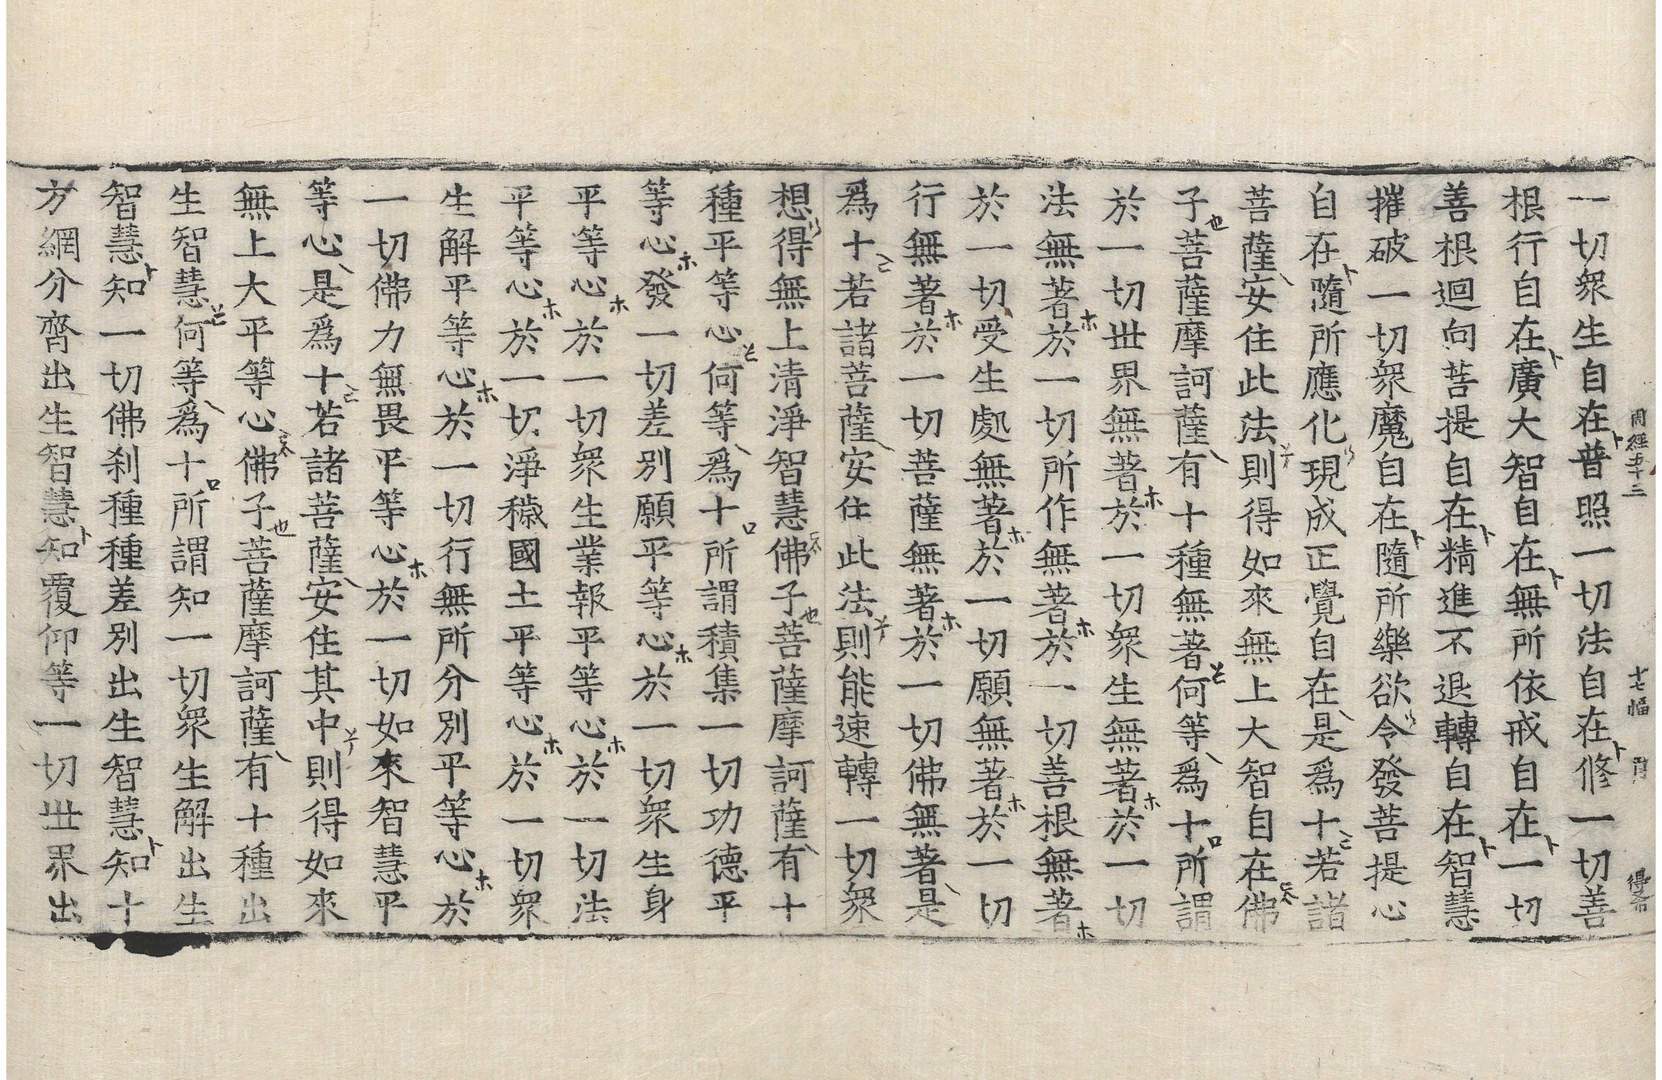 周經五十三 十七幅
一切衆生自在普照一切法自在修一切善
根行自在廣大智自在無所依戒自在一切
善根迴向菩提自在精進不退轉自在智慧
摧破一切衆魔自在隨所樂欲令發菩提心
自在隨所應化現成正覺自在是爲十若諸
菩薩安住此法則得如來無上大智自在佛
子菩薩摩訶薩有十種無著何等爲十所謂
於一切世界無著於一切衆生無著於一切
法無著於一切所作無著於一切善根無著
於一切受生處無著於一切願無著於一切
行無著於一切菩薩無著於一切佛無著是
爲十若諸菩薩安住此法則能速轉一切衆
想得無上清淨智慧佛子菩薩摩訶薩有十
種平等心何等爲十所謂積集一切功德平
等心發一切差別願平等心於一切衆生身
平等心於一切衆生業報平等心於一切法
平等心於一切淨穢國土平等心於一切衆
生解平等心於一切行無所分別平等心於
一切佛力無畏平等心於一切如來智慧平
等心是爲十若諸菩薩安住其中則得如來
無上大平等心佛子菩薩摩訶薩有十種出
生智慧何等爲十所謂知一切衆生解出生
智慧知一切佛刹種種差別出生智慧知十
方網分齊出生智慧知覆仰等一切世界出